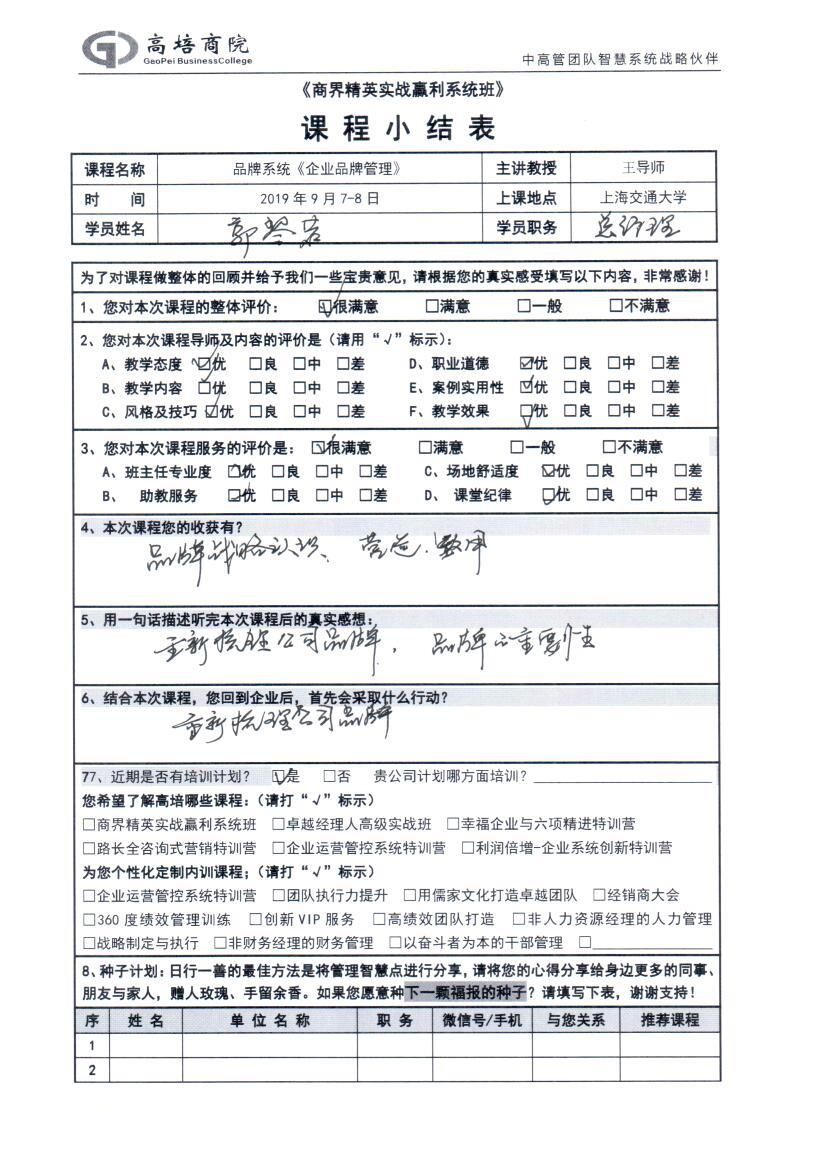 高培商院
GaoPei BusinessCollege
中高管团队智慧系统战略伙伴
《商界精英实战赢利系统班》
课程小结表
课程名称 品牌系统《企业品牌管理》 主讲教授 王导师
时 间 2019 年 9 月 7-8 日 上课地点 上海交通大学
学员姓名 郭 学员职务 总经理
为了对课程做整体的回顾并给予我们一些宝贵意见,请根据您的真实感受填写以下内容,非常感谢!
1、您对本次课程的整体评价: ☑很满意 □满意 □一般 □不满意
2、您对本次课程导师及内容的评价是(请用“√”标示):
A、教学态度 ☑优 □良 □中 □差 D、职业道德 ☑优 □良 □中 □差
B、教学内容 ☑优 □良 □中 □差 E、案例实用性 ☑优 □良 □中 □差
C、风格及技巧 ☑优 □良 □中 □差 F、教学效果 ☑优 □良 □中 □差
3、您对本次课程服务的评价是: ☑很满意 □满意 □一般 □不满意
A、班主任专业度 ☑优 □良 □中 □差 C、场地舒适度 ☑优 □良 □中 □差
B、 助教服务 ☑优 □良 □中 □差 D、 课堂纪律 ☑优 □良 □中 □差
4、本次课程您的收获有?
品牌战略认识、
5、用一句话描述听完本次课程后的真实感想:
重新梳理公司品牌, 品牌的重要性
6、结合本次课程,您回到企业后,首先会采取什么行动?
重新梳理公司品牌
77、近期是否有培训计划? ☑是 □否 贵公司计划哪方面培训?
您希望了解高培哪些课程:(请打“√”标示)
□商界精英实战赢利系统班 □卓越经理人高级实战班 □幸福企业与六项精进特训营
□路长全咨询式营销特训营 □企业运营管控系统特训营 □利润倍增-企业系统创新特训营
为您个性化定制内训课程;(请打“√”标示)
□企业运营管控系统特训营 □团队执行力提升 □用儒家文化打造卓越团队 □经销商大会
□360 度绩效管理训练 □创新 VIP 服务 □高绩效团队打造 □非人力资源经理的人力管理
□战略制定与执行 □非财务经理的财务管理 □以奋斗者为本的干部管理 □
8、种子计划:日行一善的最佳方法是将管理智慧点进行分享,请将您的心得分享给身边更多的同事、
朋友与家人,赠人玫瑰、手留余香。如果您愿意种下一颗福报的种子?请填写下表,谢谢支持!
序 姓 名 单 位 名 称 职 务 微信号/手机 与您关系 推荐课程
1
2